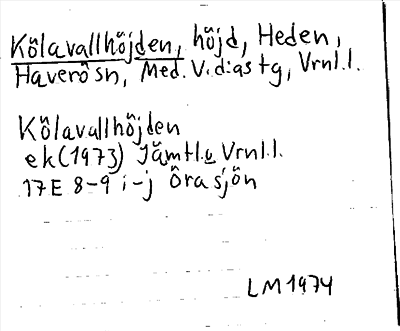 Kölavallhöjden, höjd, Heden,
Haverö sn, Med. V. d:as tg, Vrml.l.
Kölavallhöjden
ek (1973) Jämtl. o Vrnl.l.
17E 8-9 i-j Örasjön
LM 1974